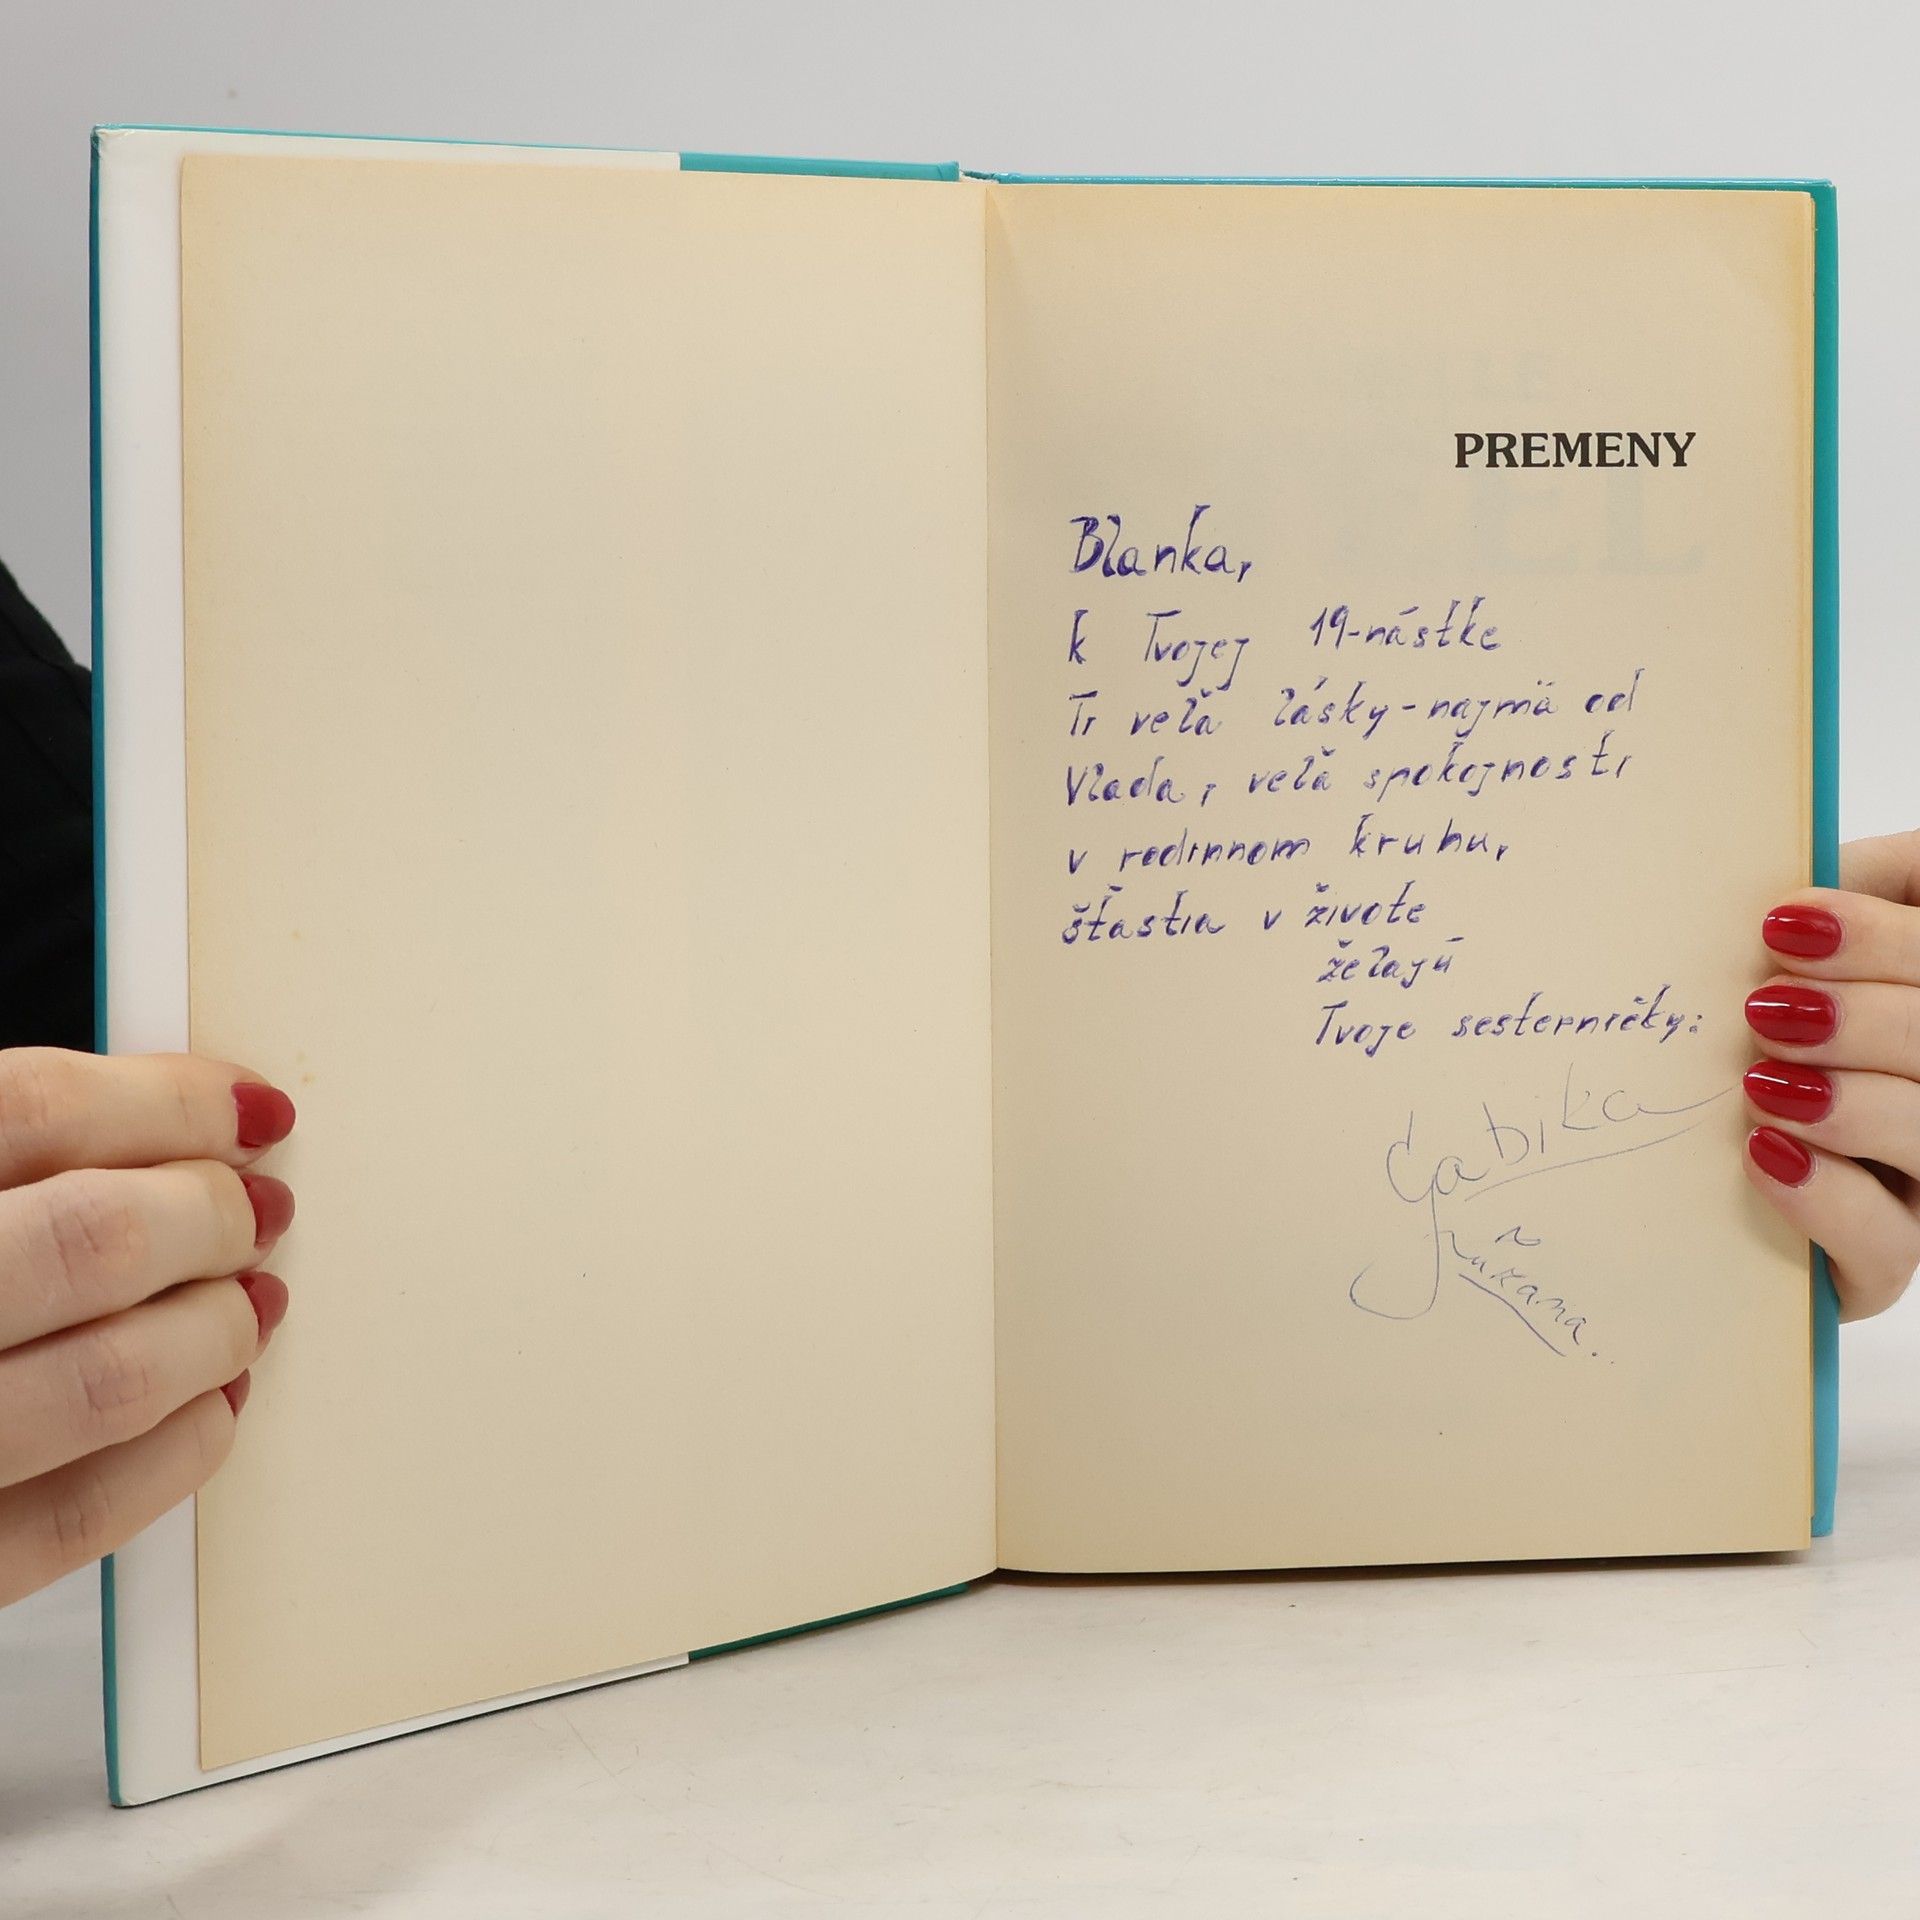 PREMENY
Blanka,
k Tvojej 19-nástke
Ti veľa lásky - najmä od
Vlada, veľa spokojnosti
v rodinnom kruhu,
šťastia v živote
želajú
Tvoje sesterničky:
Gabika
Zuzana.